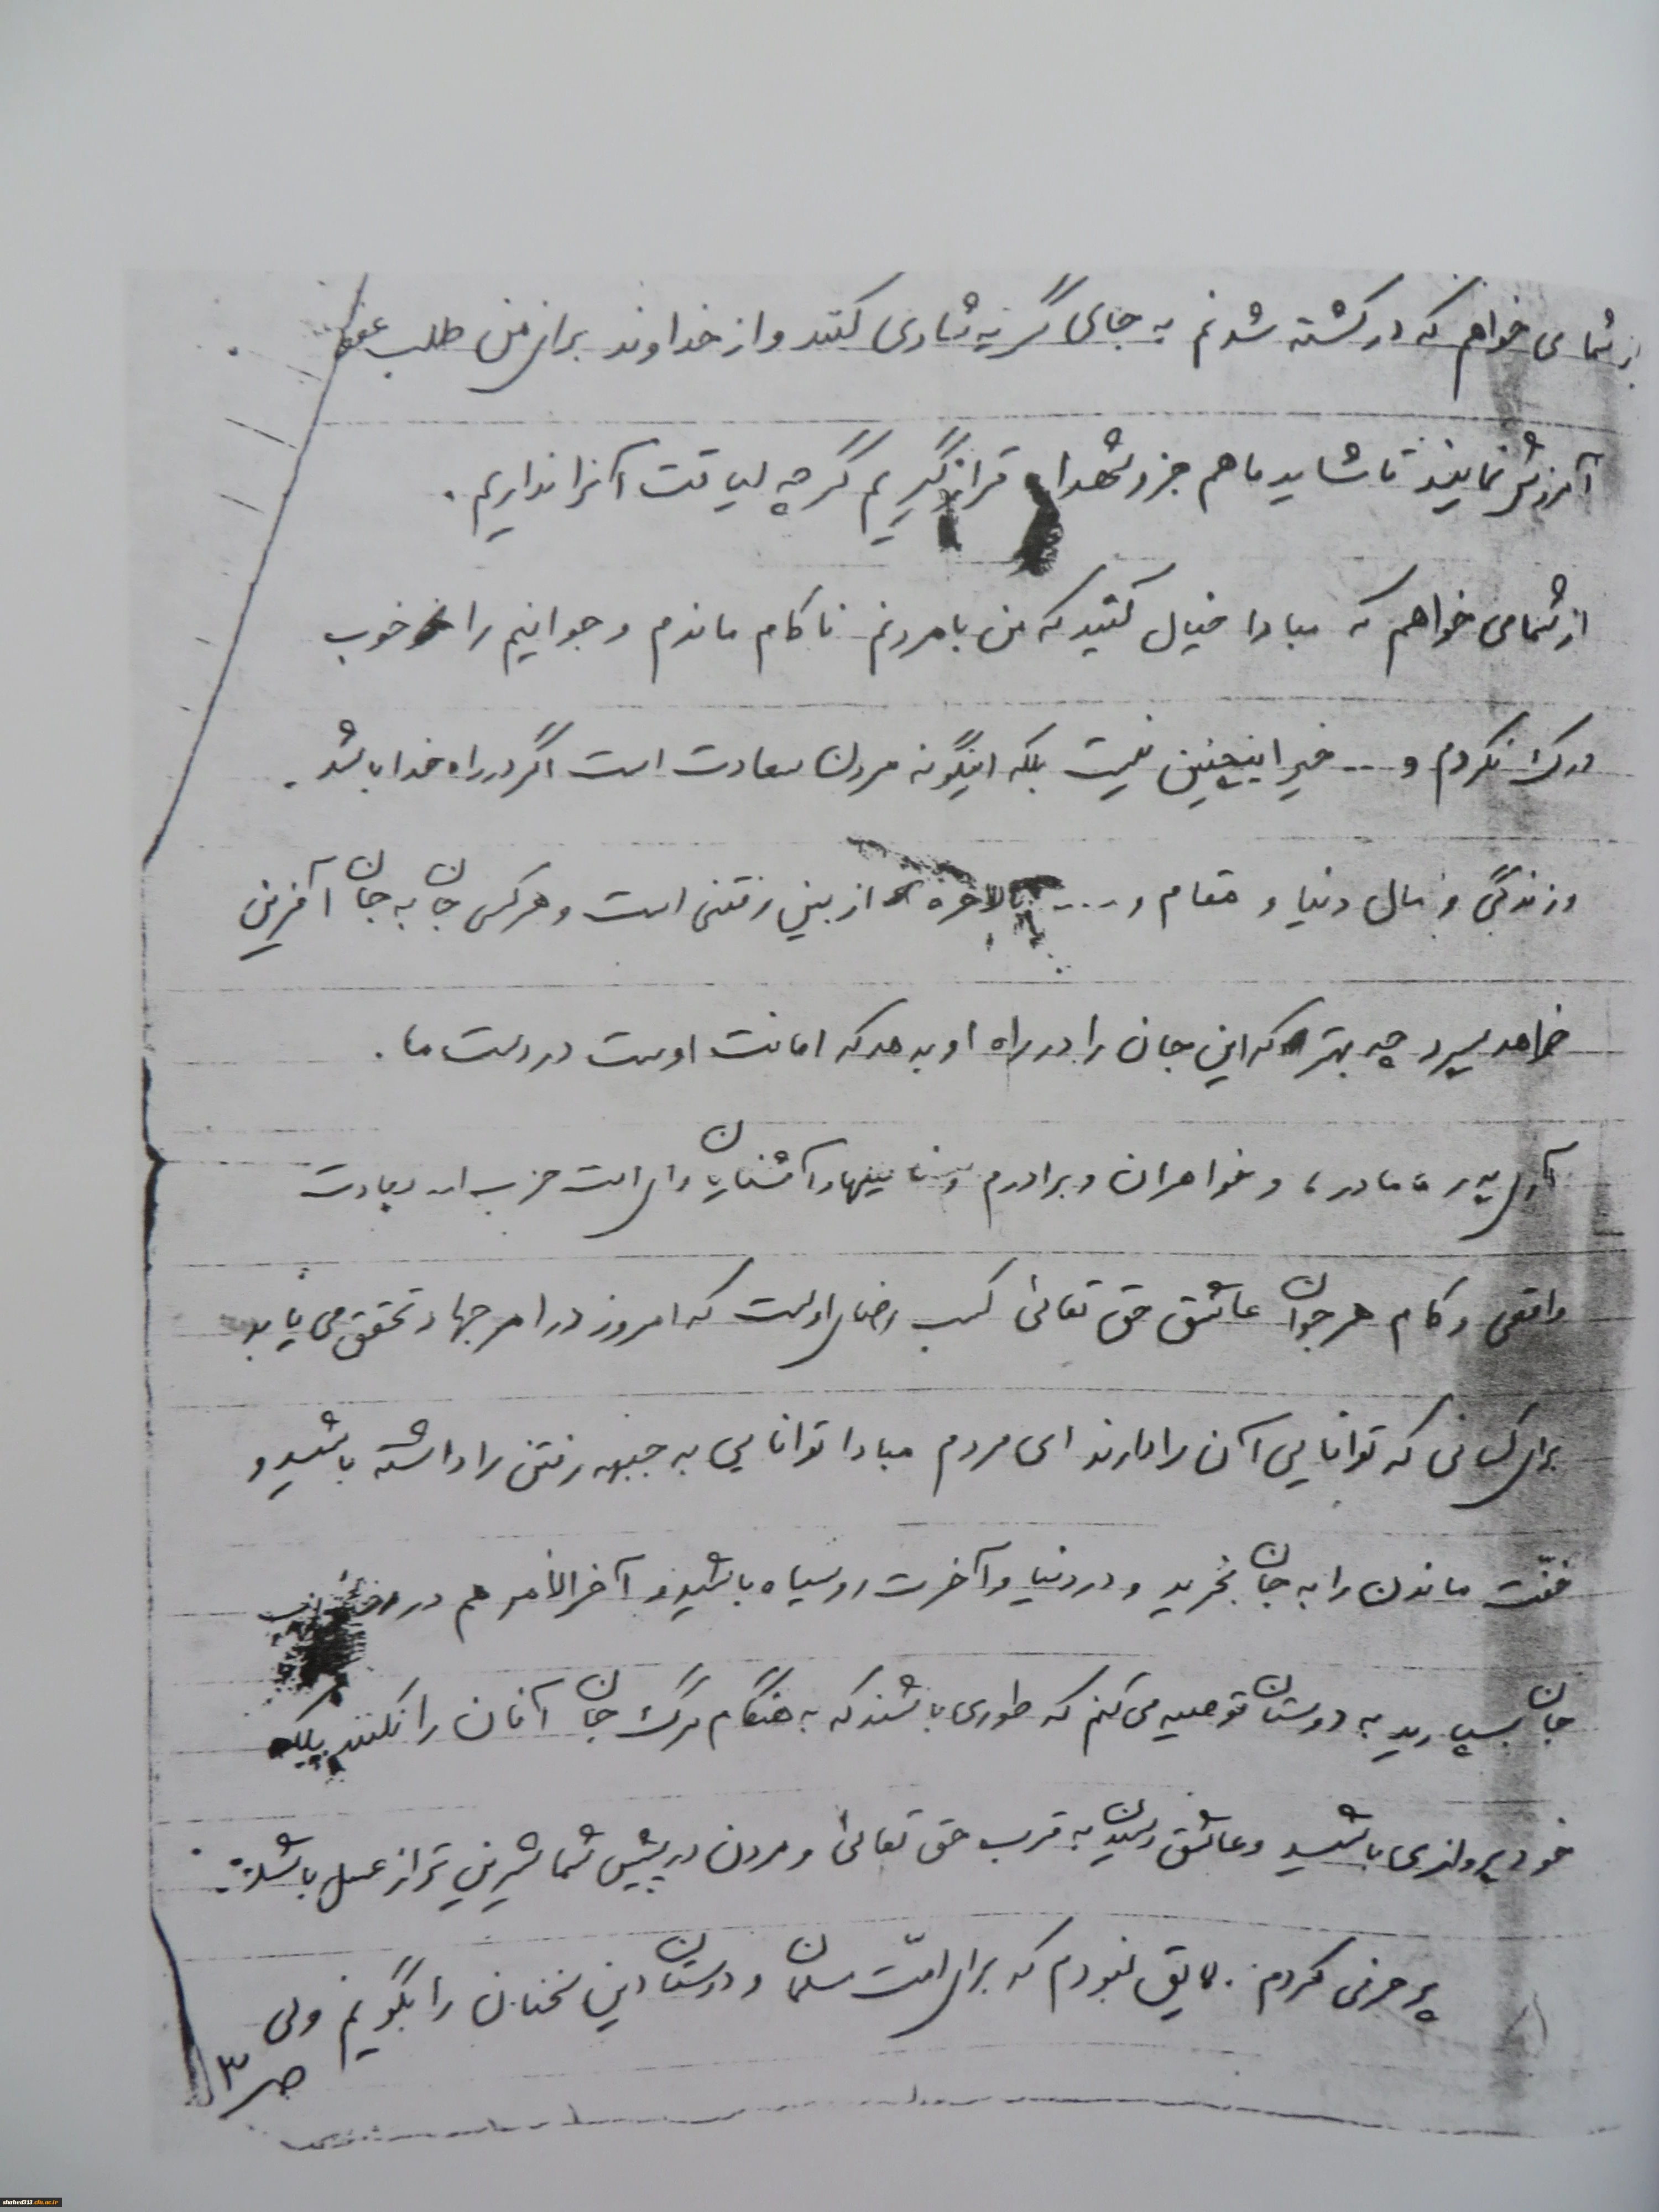 از شما می خواهم که در کشته شدنم به جای گریه شادی کنند و از خداوند برای من طلب عفو
آمرزش نمایند تا شاید ما هم جزو شهدا قرار گیریم گرچه لیاقت آنرا نداریم .
از شما می خواهم که مبادا خیال کنید که من با مردنم ناکام ماندم و جوانیم را خوب
درک نکردم و ... خیر اینچنین نیست بلکه اینگونه مردن سعادت است اگر در راه خدا باشد .
و زندگی و مال دنیا و مقام و .... بالاخره از بین رفتنی است و هر کس جان به جان آفرین
خواهد سپرد چه بهتر که این جان را در راه او بدهد که امانت اوست در دست ما .
آری پدر ، مادر ، و خواهران و برادرم و فامیلها و آشنایان و ای امت حزب الله سعادت
واقعی و کام هر جوان عاشق حق تعالی کسب رضای اوست که امروز در امر جهاد تحقق می یابد
برای کسانی که توانایی آن را دارند ای مردم مبادا توانایی به جبهه رفتن را داشته باشید و
خفّت ماندن را به جان بخرید و در دنیا و آخرت روسیاه باشید و آخرالامر هم در
جان بسپارید به دوستان توصیه می کنم که طوری باشند که به هنگام مرگ جان آنان را نکنند بلکه
خود پروازی باشید و عاشق رسیدن به قرب حق تعالی و مردن در پیش شما شیرین تر از عسل باشد .
پر حرفی کردم . لایق نبودم که برای امّت مسلمان و دوستان این سخنان را بگویم ولی
ص ۳
shahed313.cfu.ac.ir